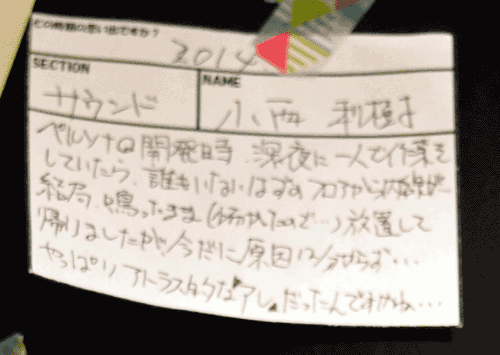 どの時期の思い出ですか？
2014
SECTION
NAME
サウンド
小西 利樹
ペルソナQ開発時、深夜に一人で作業を
していたら、誰もいないはずのフロアから内線が…
結局、鳴ったまま(怖かったので…)放置して
帰りましたが、今だに原因は分からず…
やっぱりアトラス的な"アレ"だったんですかね…